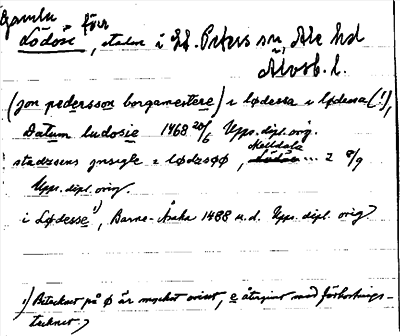 Gamla förr
Lödöse, staden i St. Peters sn, Ale hd
Älvsb. l.
(jon pedersson borgamestere) i lødessa i lødessa (!),
Datum ludosie 1468 20/6 Upps. dipl. orig.
stadzsens insigle i lødesøø, ... 2 8/9
Upps. dipl. orig.
i Lødesse 1), Barne-Åsaka 1488 u.d. Upps. dipl. orig.
1) Betecknet på ø är mycket ovisst, e återgivet med förkortnings-
tecknet